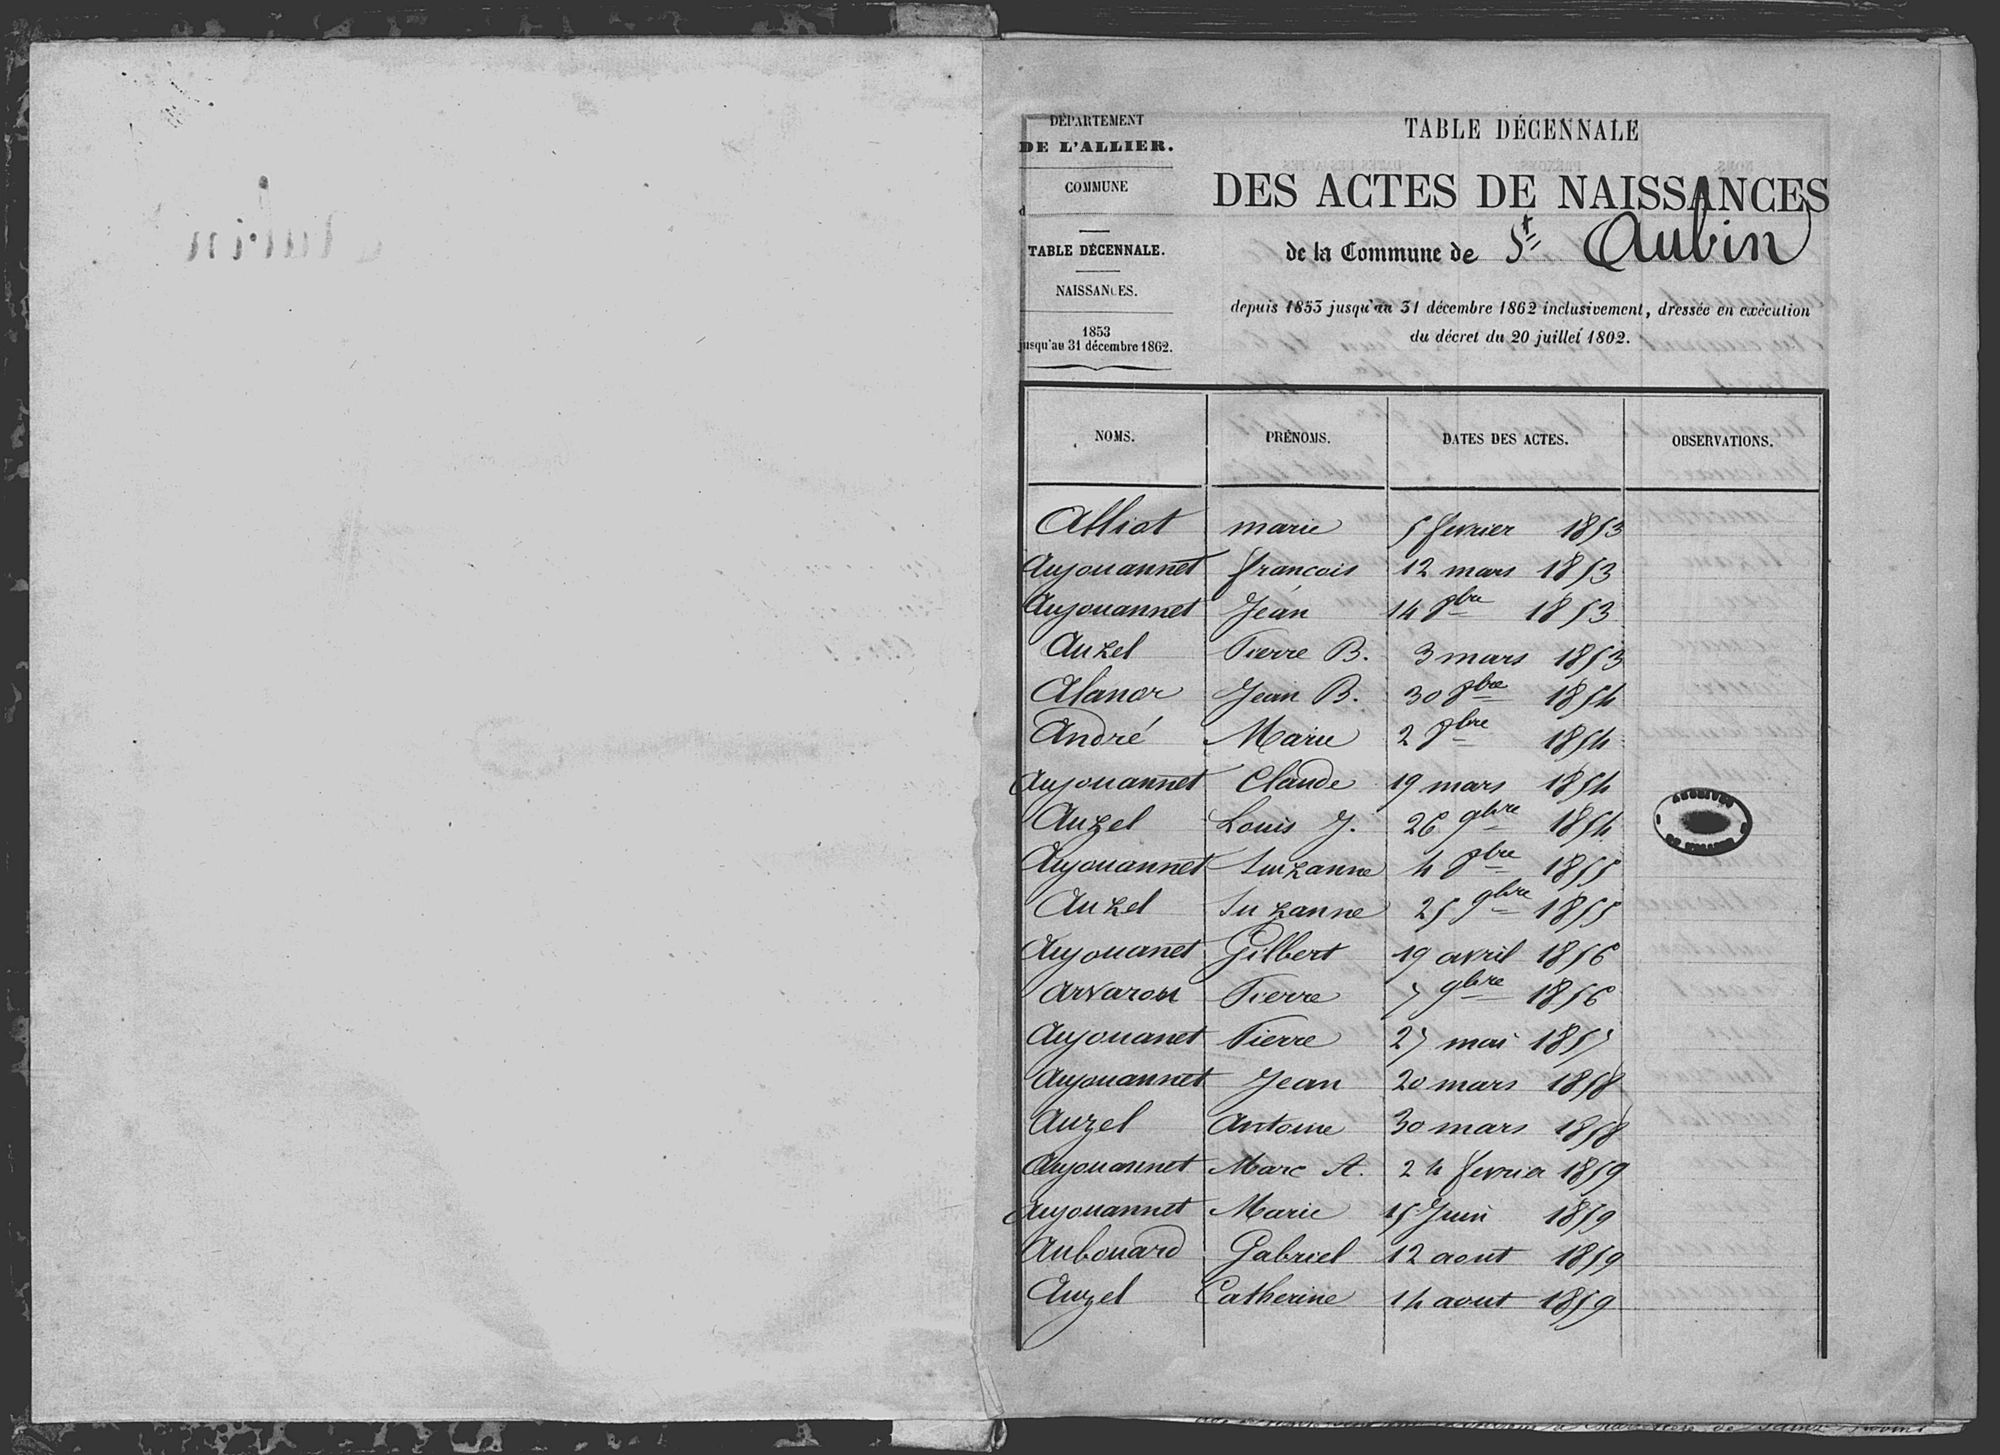 DÉPARTEMENT
DE L'ALLIER.
COMMUNE
d
TABLE DÉCENNALE.
NAISSANCES.
1853
jusqu'au 31 décembre 1862.
TABLE DÉCENNALE
DES ACTES DE NAISSANCES
de la Commune de St Aubin
depuis 1853 jusqu'au 31 décembre 1862 inclusivement, dressée en exécution
du décret du 20 juillet 1802.
NOMS. PRÉNOMS. DATES DES ACTES. OBSERVATIONS.
Alliot marie 5 fevrier 1853
Aujouannet françois 12 mars 1853
Aujouannet Jean 14 8bre 1853
Auzel Pierre B. 3 mars 1853
Alanor Jean B. 30 8bre 1854
André Marie 2 8bre 1854
Aujouannet Claude 19 mars 1854
Auzel Louis J. 26 9bre 1854
Aujouannet Suzanne 4 8bre 1855
Auzel Suzanne 25 9bre 1855
Aujouanet Gilbert 19 avril 1856
Arvaron Pierre 7 9bre 1856
Aujouanet Pierre 27 mai 1857
Aujouannet Jean 20 mars 1858
Auzel Antoine 30 mars 1858
Aujouannet Marc A. 24 fevrier 1859
Aujouannet Marie 15 Juin 1859
Aubouard Gabriel 12 aout 1859
Auzel Catherine 14 aout 1859
ARCHIVES